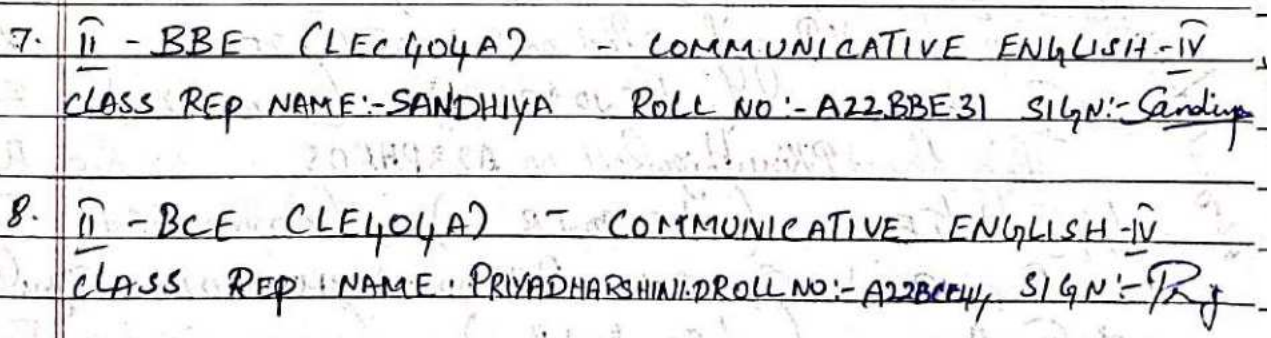 7. II - BBE (LEC404A) - COMMUNICATIVE ENGLISH-IV
CLASS REP NAME:-SANDHIYA ROLL NO:-A22BBE31 SIGN:-Sandiya
8. II - BCE (LE404A) - COMMUNICATIVE ENGLISH-IV
CLASS REP NAME. PRIYADHARSHINI.D ROLL NO:- SIGN:-